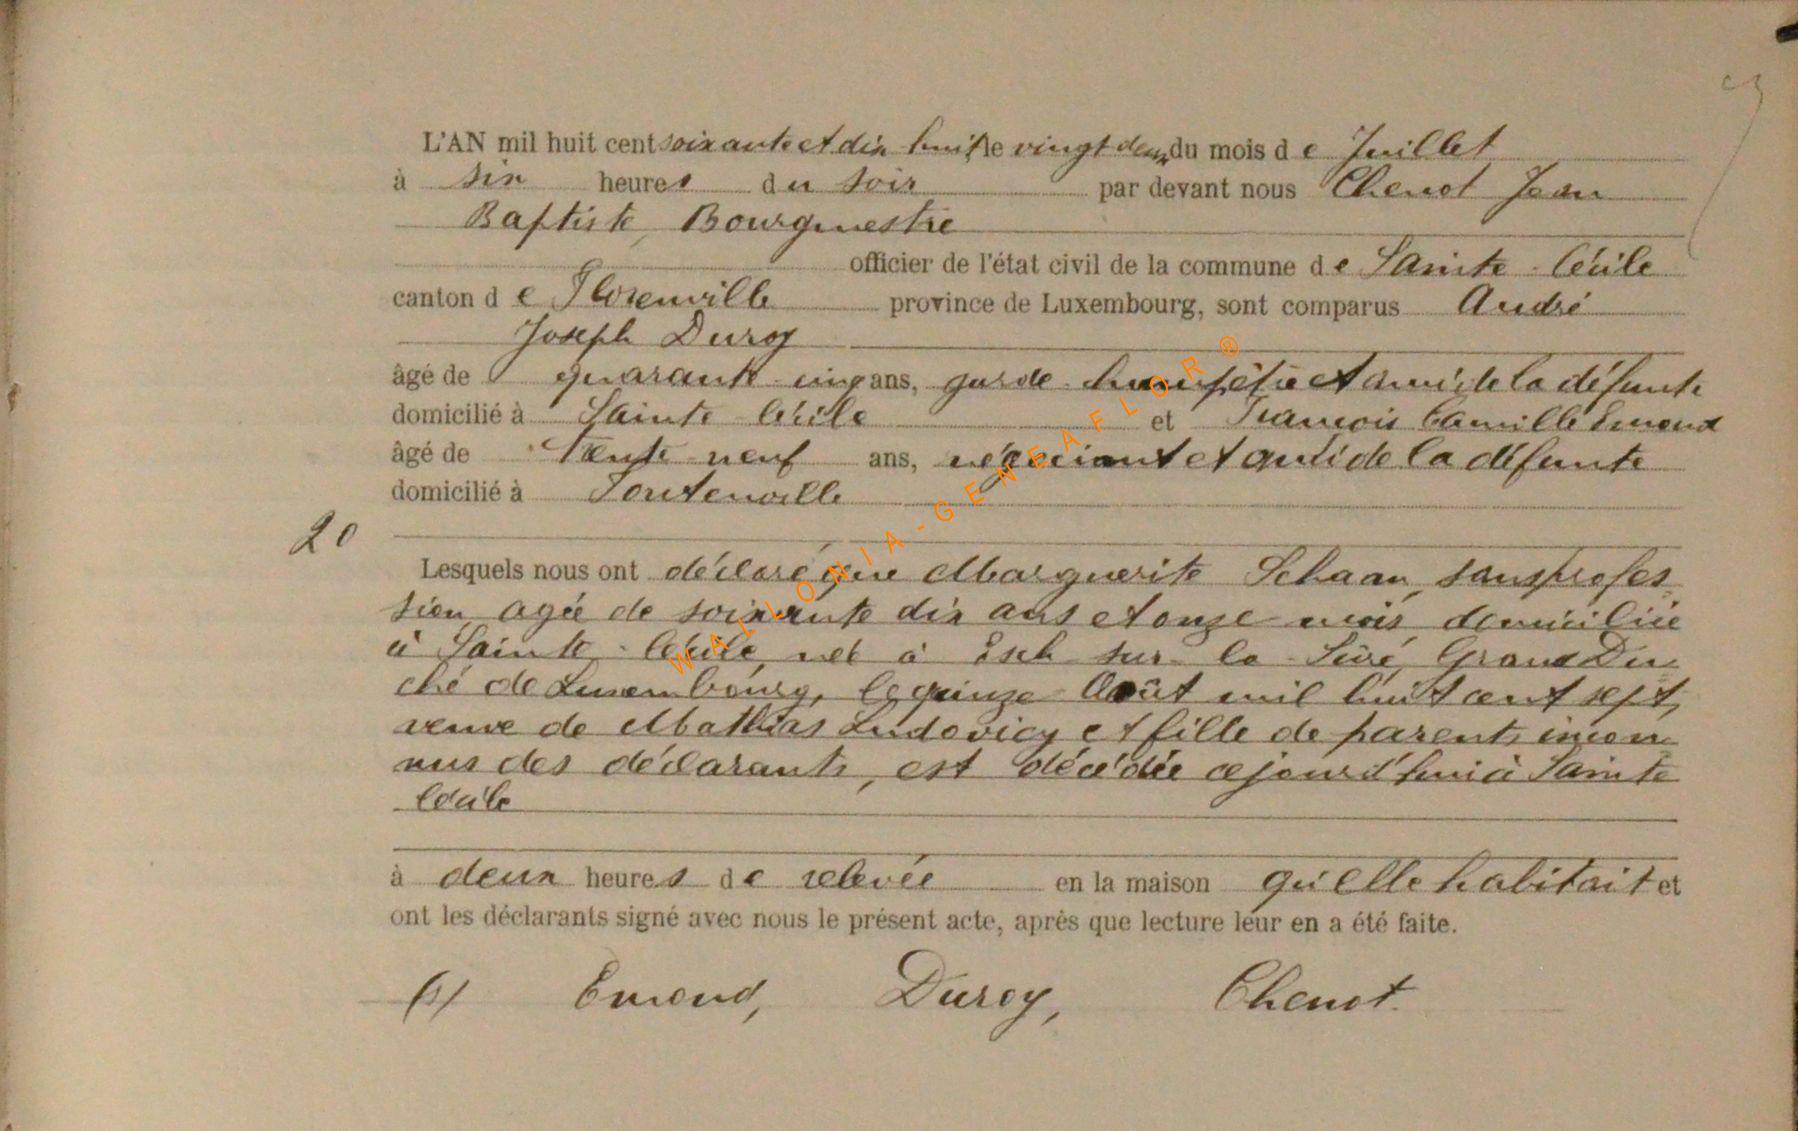 L'AN mil huit cent soixante et dix huit le vingt deux du mois de Juillet
à six heures du soir par devant nous Chenot Jean
Baptiste, Bourgmestre
officier de l'état civil de la commune de Sainte-Cécile
canton de Florenville province de Luxembourg, sont comparus André
Joseph Duroy
âgé de quarante cinq ans, garde champêtre et ami de la défunte
domicilié à Sainte Cécile et François Camille Emond
âgé de trente neuf ans, négociant et ami de la défunte
domicilié à Fontenoille
20
Lesquels nous ont déclaré que Marguerite Schaan, sans profes
sion, agée de soixante dix ans et onze mois domiciliée
à Sainte-Cécile, née à Esch sur la Sûre, Grand Du
ché de Luxembourg, le quinze Août mil huit cent sept,
veuve de Mathias Ludovicy et fille de parents incon
nus des déclarants, est décédée ce jourd'hui à Sainte
Cécile
à deux heures de relevée en la maison qu'elle habitait et
ont les déclarants signé avec nous le présent acte, après que lecture leur en a été faite.
(s) Emond, Duroy, Chenot.
WALLONIA-GENEAFLOR ®